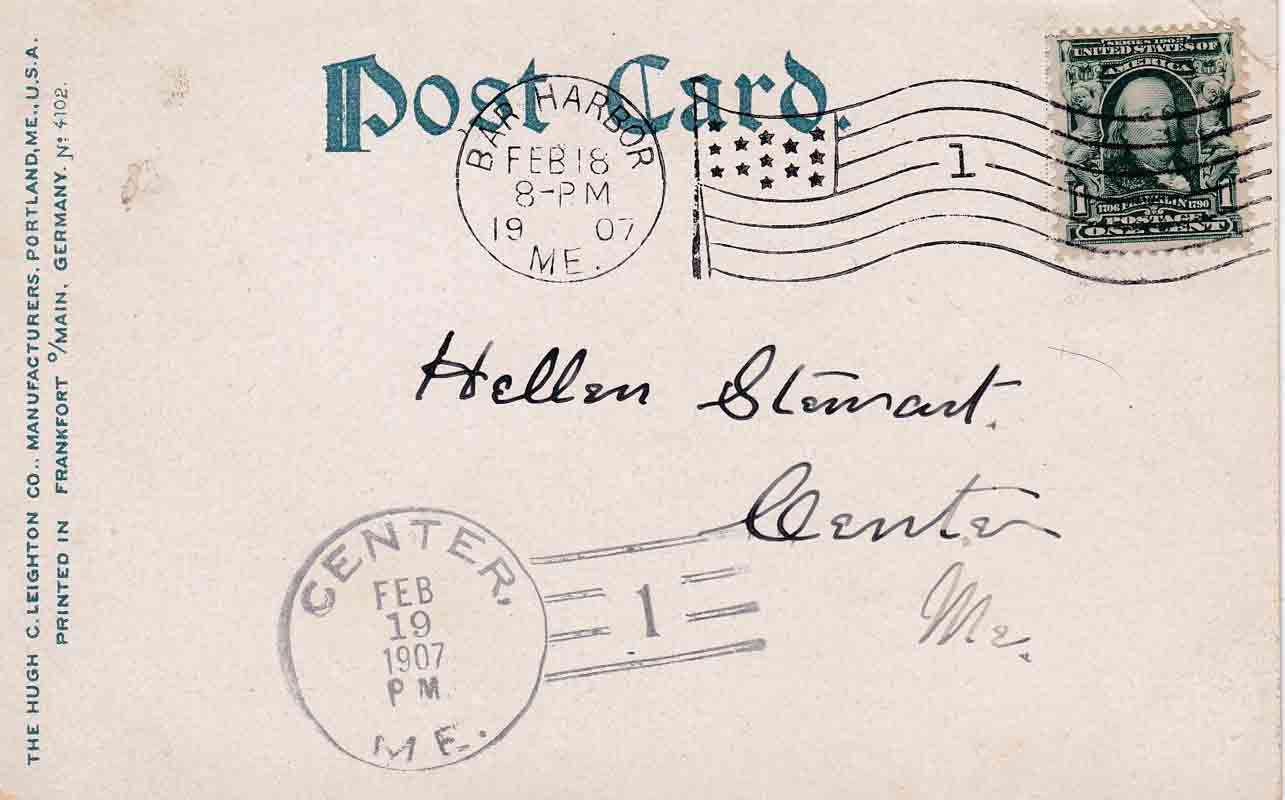 THE HUGH C. LEIGHTON CO., MANUFACTURERS, PORTLAND, ME., U.S.A.
PRINTED IN FRANKFORT O/MAIN, GERMANY. No 4102.
Post Card.
BAR HARBOR
FEB 18
8-PM
19 07
ME.
1
SERIES 1902
UNITED STATES OF
AMERICA
1 1
1706 FRANKLIN 1790
POSTAGE
ONE CENT
Hellen Stewart.
Center
Me.
CENTER.
FEB
19
1907
PM
ME.
1